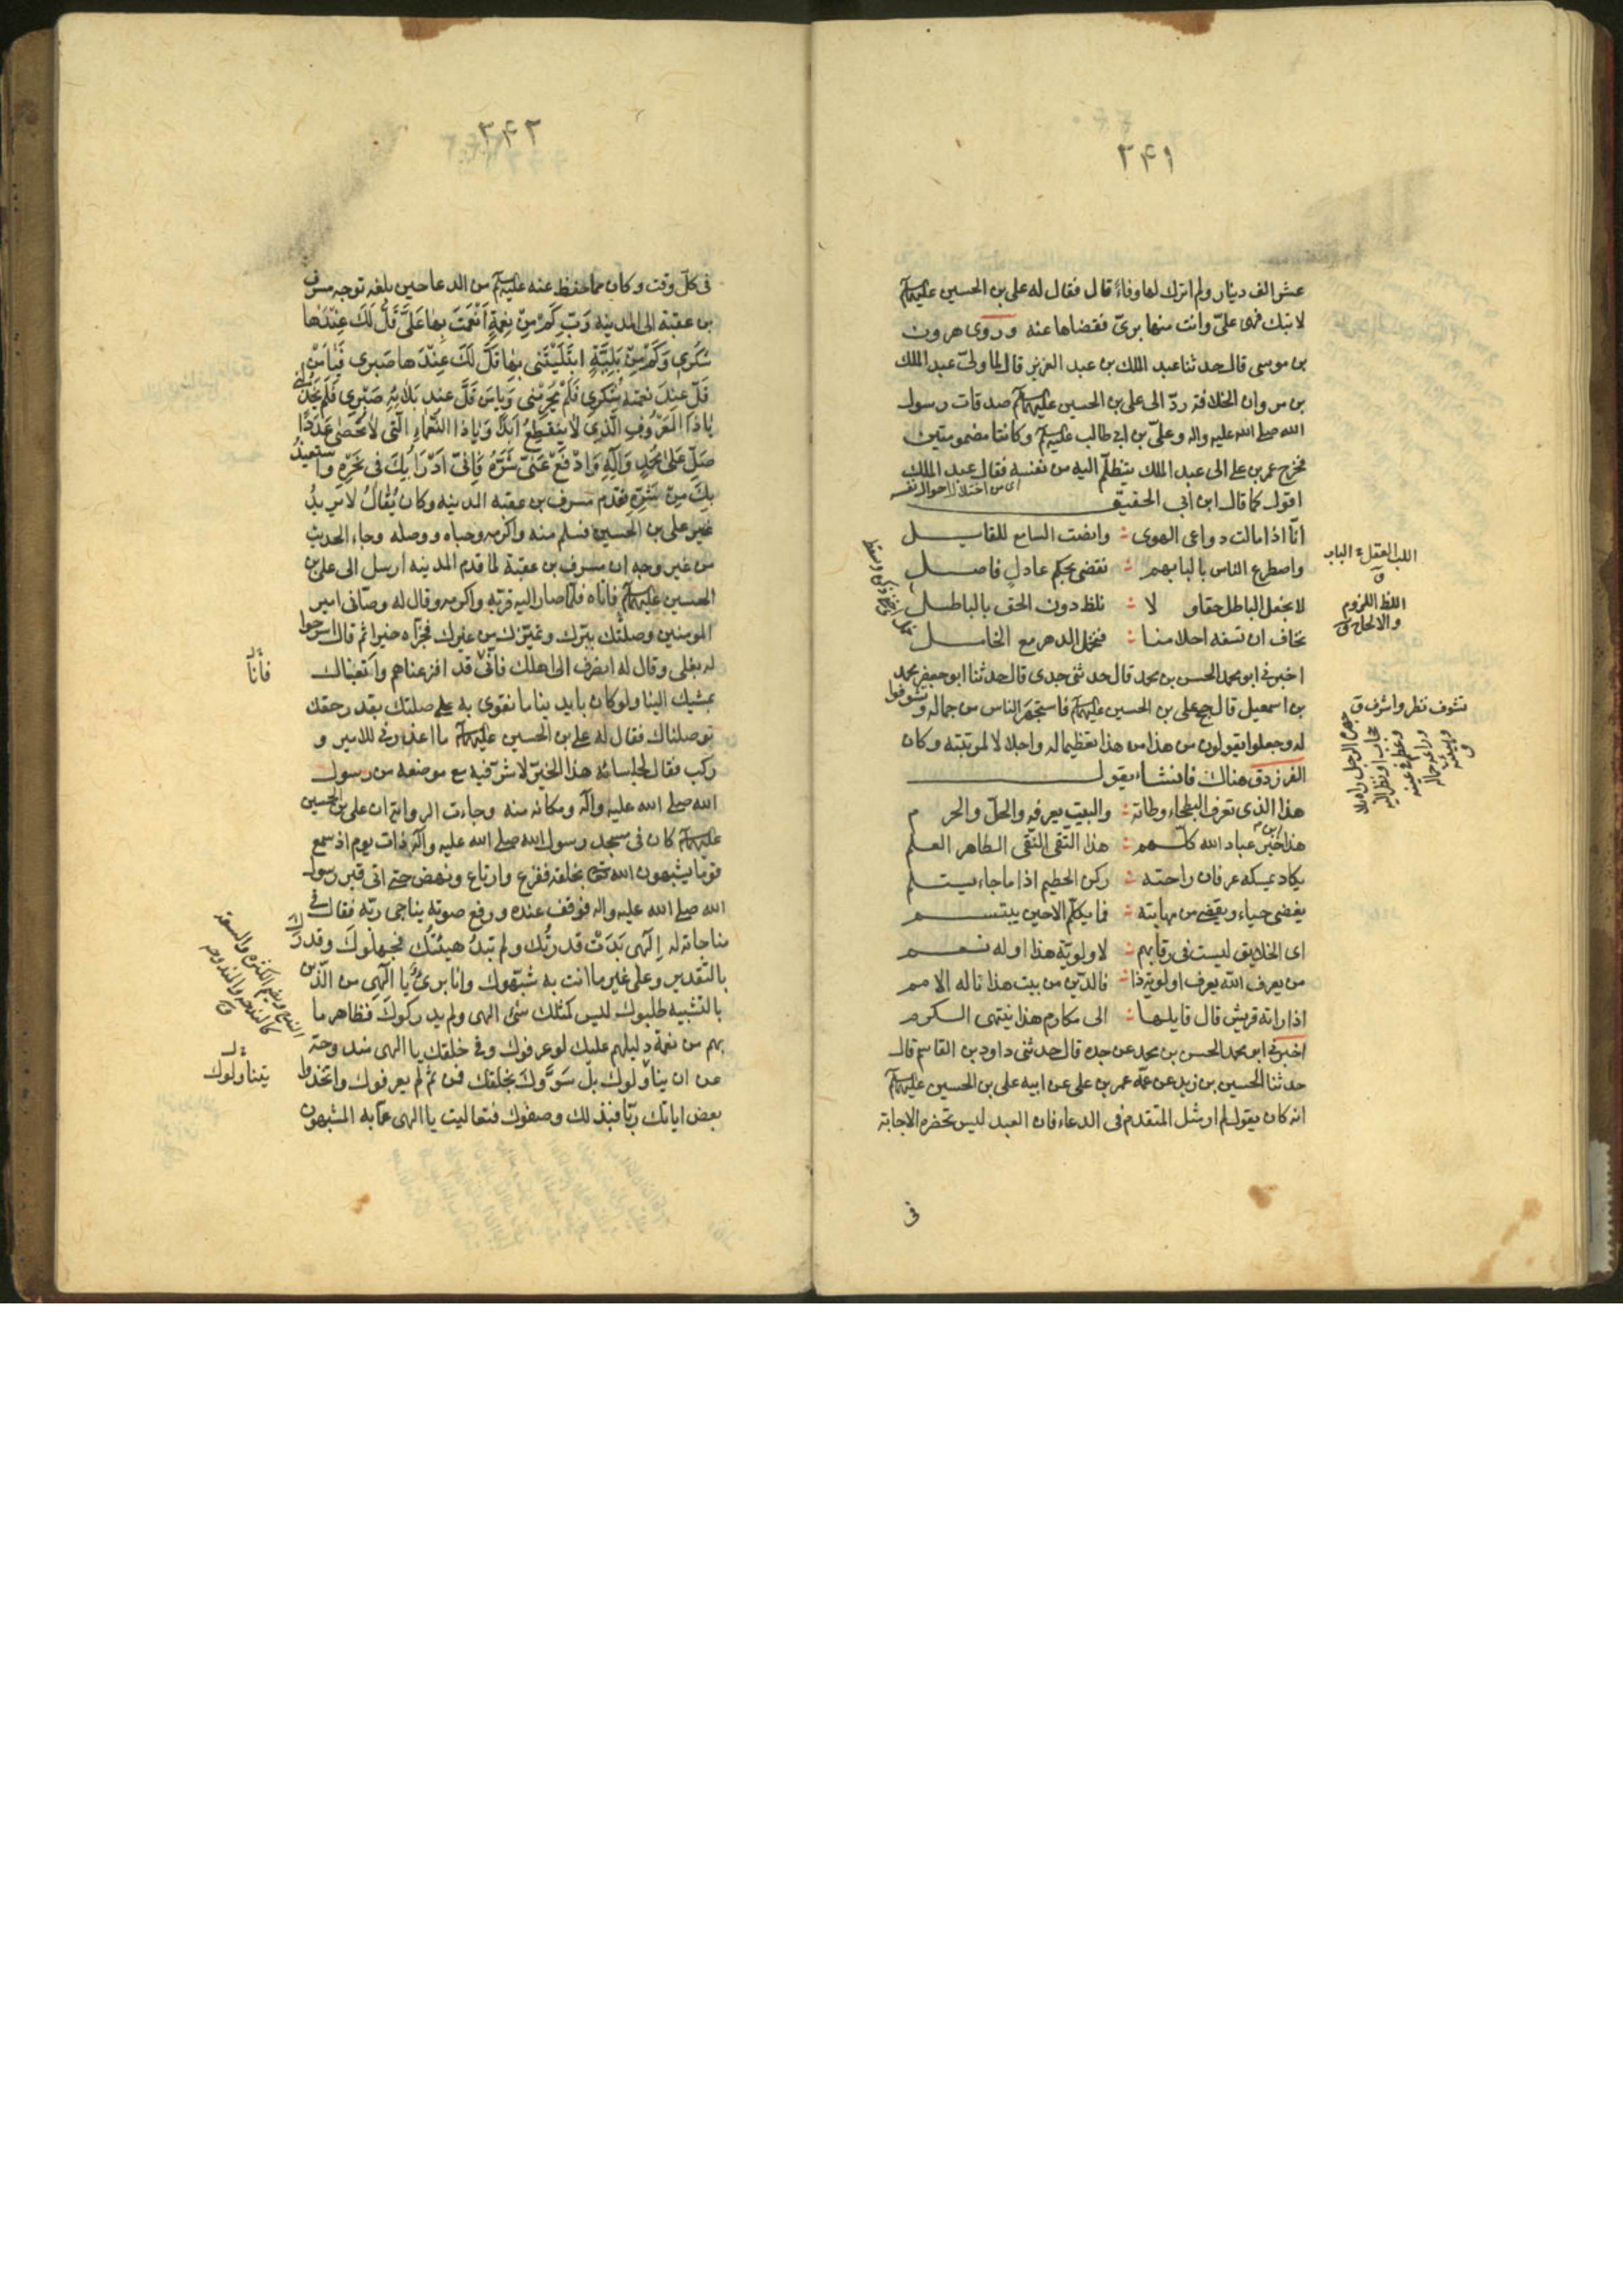 ٣۴١
عشر الف دينار ولم اترك لها وفاءً قال فقال له على بن الحسين عليهما السلم
لا تبك فهى علىّ وانت منها برىّ فقضاها عنه وروى هرون
بن موسى قال حدثنا عبد الملك بن عبد العزيز قال لما ولىّ عبد الملك
بن مروان الخلافة ردّ الى على بن الحسين عليهما السلم صدقات رسول
الله صلى الله عليه واله وعلىّ بن ابى طالب عليه السلم وكانتا مضمومتين
فخرج عمر بن على الى عبد الملك يتظلّم اليه من نفسه فقال عبد الملك
اى من اختلال احوال نفسه
اقول كما قال ابن ابى الحقيق
انّا اذا مالت دواعى الهوى : وانصت السامع للقايل
واصطرع الناس بالبابهم : نقضى بحكم عادل فاصل
لا نجعل الباطل حقا و لا : نلظ دون الحق بالباطل
نخاف ان تسفه احلامنا : فنخمل الدهر مع الخامل
اخبرنى ابو محمد الحسن بن محمد قال حدثنى جدى قال حدثنا ابو جعفر محمد
بن اسمعيل قال حج على بن الحسين عليهما السلم فاستجهر الناس من جماله وتشوفوا
له وجعلوا يقولون من هذا من هذا تعظيما له واجلالا لمرتبته وكان
الفرزدق هناك فانشاء يقول
هذا الذى تعرف البطحاء وطاته : والبيت يعرفه والحلّ والحرم
هذا ابن خير عباد الله كلّهم : هذا التّقى النّقى الطاهر العلم
يكاد يمسكه عرفان راحته : ركن الحطيم اذا ما جاء يستلم
يغضى حياء ويغضى من مهابته : فما يكلّم الاحين يبتسم
اى الخلايق ليست فى رقابهم : لاوليّة هذا او له نعم
من يعرف الله يعرف اولوية ذا : فالدّين من بيت هذا ناله الامم
اذا راته قريش قال قايلها : الى مكارم هذا ينتهى الكرم
اخبرنى ابو محمد الحسن بن محمد عن جده قال حدثنى داود بن القاسم قال
حدثنا الحسين بن زيد عن عمّه عمر بن على عن ابيه على بن الحسين عليهما السلم
انه كان يقول لم ار مثل المتقدم فى الدعاء فان العبد ليس تحضره الاجابة
فى
اللب العقل ج الباب
ق
اللظ اللزوم
والالحاح ق
تشوف نظر واشرف ق
٣۴٢
فى كلّ وقت وكان مما حفظ عنه عليه السلم من الدعا حين بلغه توجه مسرف
بن عقبة الى المدينه رَبِّ كَمْ مِنْ نِعْمَةٍ اَنْعَمْتَ بِهَا عَلَىَّ قَلَّ لَكَ عِنْدَهٰا
شكرى وَكَمْ مِنْ بَلِيَّةٍ ابْتَلَيْتَنى بِهٰا قَلَّ لَكَ عِنْدَها صَبرى فَيٰا مَنْ
قَلَّ عِنْدَ نِعمَتِه شُكْرى فَلَمْ يَحْرِمْنى وَيٰا مَن قَلَّ عند بَلائِهِ صَبْرى فَلَمْ يَخْذُلْنى
يٰا ذَا المَعْرُوفِ الَّذى لٰا يَنْقَطِعُ اَبَدًا وَيٰا ذَا النَّعْمٰاءِ الَّتى لٰا تُحْصىٰ عَدَدًا
صَلِّ عَلىٰ مُحَمَّدٍ وَآلِهِ وَادْفَعْ عَنّى شَرَّهُ فَاِنّىٓ اَدْرَأُ بِكَ فى نَحْرِهِ وَاَستعيذُ
بِكَ مِنْ شَرِّهِ فقدم مسرف بن عقبه المدينه وكان يُقٰالُ لا يريدُ
غير على بن الحسين فسلم منه واكرمه وحباه ووصله وجاء الحديث
من غير وجه ان مسرف بن عقبة لما قدم المدينه ارسل الى على بن
الحسين عليهما السلم فاتاه فلمّا صار اليه قرّبه واكرمه وقال له وصّانى امير
المومنين وصلتك ببرّك وتميزك من غيرك فجزاه خيرا ثم قال اسرجوا
له بغلى وقال له انصرف الى اهلك فانّى قد افزعناهم واتعبناك
بمشيك الينا ولو كان بايدينا ما نقوى به على صلتك بقدر حقك
لوصلناك فقال له على بن الحسين عليهما السلم ما اعذرنى للامير و
ركب فقال لجلسائه هذا الخيرّ لا شرّ فيه مع موضعه من رسول
الله صلى الله عليه وآله ومكانه منه وجاءت الرواية ان على بن الحسين
عليهما السلم كان فى مسجد رسول الله صلى الله عليه وآله ذات يوم اذ سمع
قوما يشبهون الله تعالى بخلقه ففزع وارتاع ونهض حتى اتى قبر رسول
الله صلى الله عليه واله فوقف عنده ورفع صوته يناجى ربّه فقال فى
مناجاته له اِلٰهى بَدَتْ قدرتُك ولم تبدُ هيئتُك فجهلوكَ وقدروك
بالتقدير وعلى غير ما انت به شبّهوك وانا برىءٌ يا الٓهى من الّذين
بالتشبيه طلبوك ليس كمثلك شئ الهى ولم يدركوك فظاهر ما
بهم من نعمة دليلهم عليك لو عرفوك وفى خلقك يا الهى مندوحة
عن ان يناوْلوك بل سَوَّوكَ بخلقك فمن ثمّ لم يعرفوك واتخذوا
بعض اياتك ربّا فبذلك وصفوك فتعاليت يا الهى عمّا به المشبهون
فانا
يتناولوك